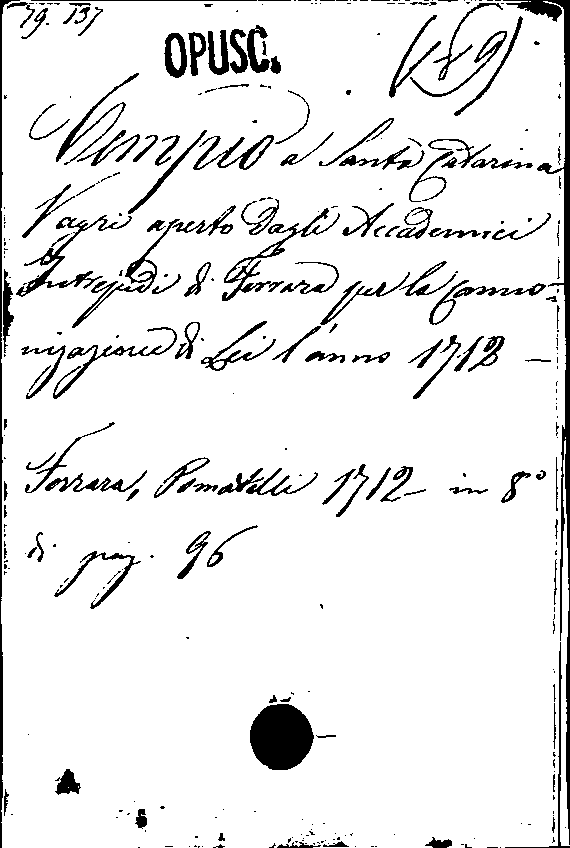 79. 137
OPUSC.
(189)
Tempio a Santa Catarina
Vagri aperto dagli Accademici
Intrepidi di Ferrara per la cano-
nizazione di Lei l'anno 1712 —
Ferrara, Pomatelli 1712 — in 8º
di pag. 96